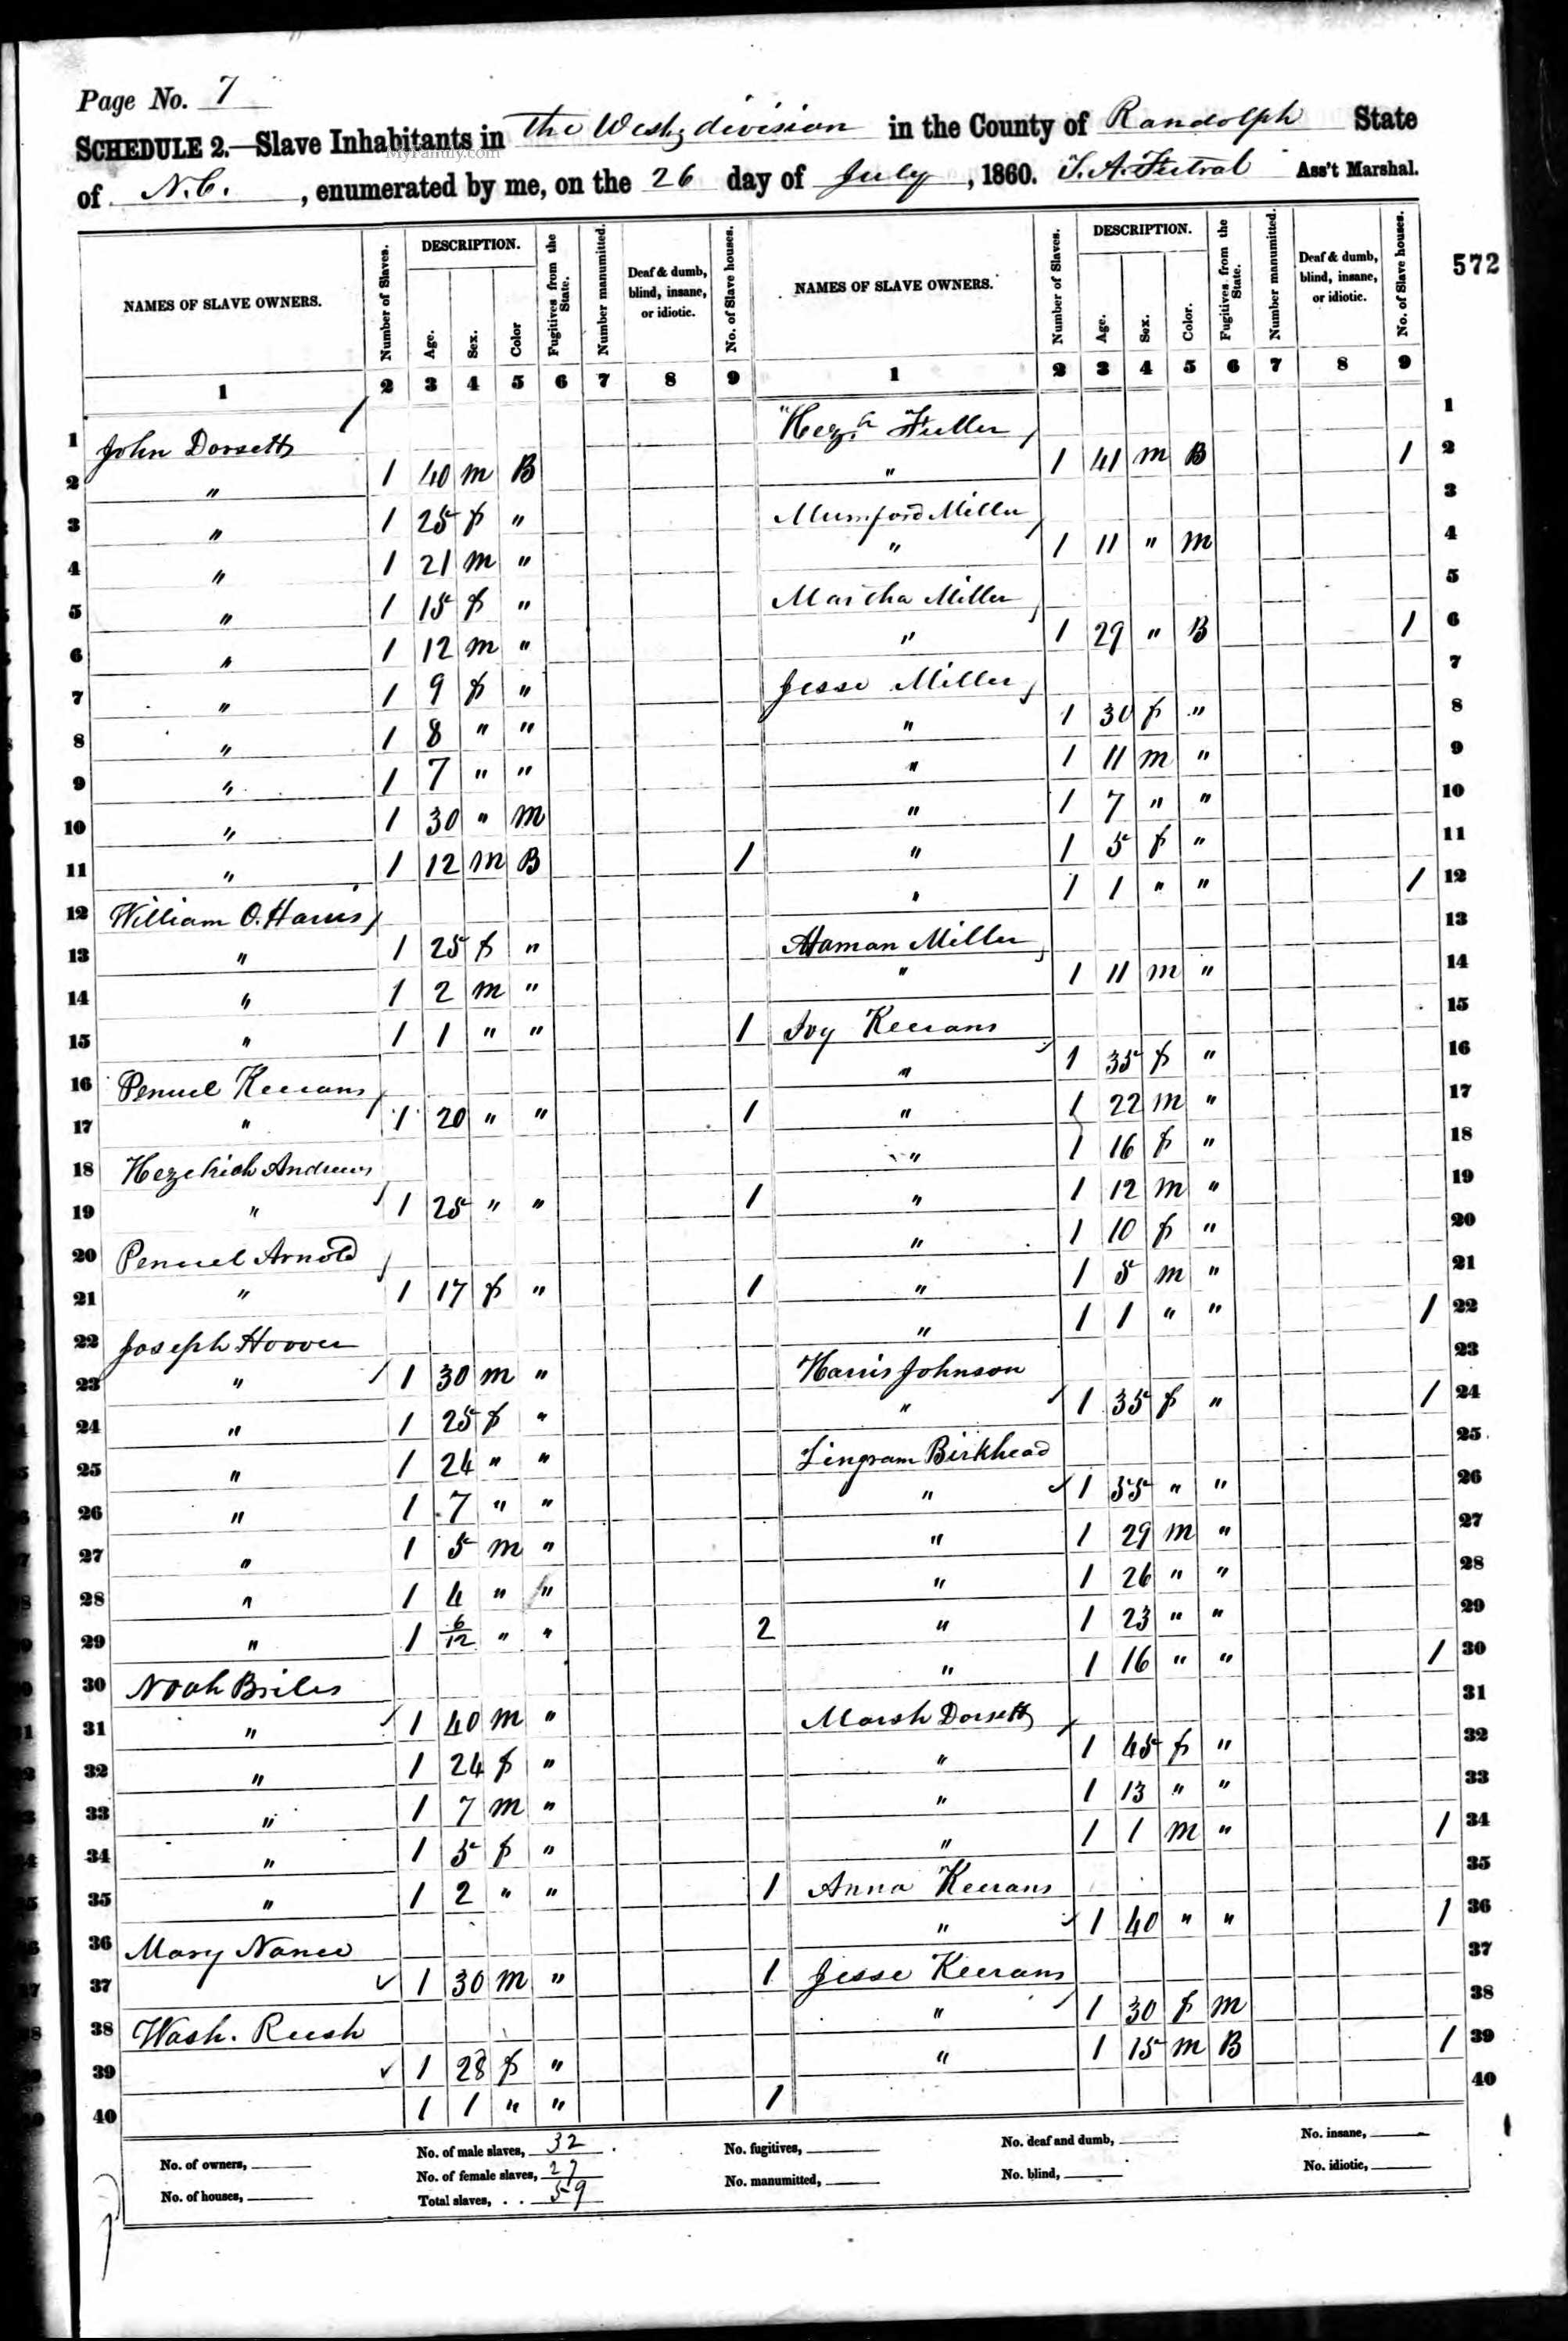 Page No. 7
SCHEDULE 2.—Slave Inhabitants in the West, division in the County of Randolph State
MyFamily.com
of N.C., enumerated by me, on the 26 day of July, 1860. Ass't Marshal.
572
NAMES OF SLAVE OWNERS. Number of Slaves. DESCRIPTION. Age. Sex. Color Fugitives from the State. Number manumitted. Deaf & dumb, blind, insane, or idiotic. No. of Slave houses. NAMES OF SLAVE OWNERS. Number of Slaves. DESCRIPTION. Age. Sex. Color. Fugitives from the State. Number manumitted. Deaf & dumb, blind, insane, or idiotic. No. of Slave houses.
1 2 3 4 5 6 7 8 9 1 2 3 4 5 6 7 8 9
1 John Dorsett Hez.h Fuller 1
2 " 1 40 m B " 1 41 m B 1 2
3 " 1 25 f " Mumford Miller 3
4 " 1 21 m " " 1 11 " m 4
5 " 1 15 f " Martha Miller 5
6 " 1 12 m " " 1 29 " B 1 6
7 " 1 9 f " Jesse Miller 7
8 " 1 8 " " " 1 30 f " 8
9 " 1 7 " " " 1 11 m " 9
10 " 1 30 " m " 1 7 " " 10
11 " 1 12 m B 1 " 1 5 f " 11
12 William O. Harris " 1 1 " " 1 12
13 " 1 25 f " Haman Miller 13
14 " 1 2 m " " 1 11 m " 14
15 " 1 1 " " 1 Ivy Keerans 15
16 Penuel Keerans " 1 35 f " 16
17 " 1 20 " " 1 " 1 22 m " 17
18 Hezekiah Andrews " 1 16 f " 18
19 " 1 25 " " 1 " 1 12 m " 19
20 Penuel Arnold " 1 10 f " 20
21 " 1 17 f " 1 " 1 5 m " 21
22 Joseph Hoover " 1 1 " " 1 22
23 " 1 30 m " Harris Johnson 23
24 " 1 25 f " " 1 35 f " 1 24
25 " 1 24 " " Lingram Birkhead 25
26 " 1 7 " " " 1 55 " " 26
27 " 1 5 m " " 1 29 m " 27
28 " 1 4 " " " 1 26 " " 28
29 " 1 6/12 " " 2 " 1 23 " " 29
30 Noah Briles " 1 16 " " 1 30
31 " 1 40 m " Marsh Dorsett 31
32 " 1 24 f " " 1 45 f " 32
33 " 1 7 m " " 1 13 " " 33
34 " 1 5 f " " 1 1 m " 1 34
35 " 1 2 " " 1 Anna Keerans 35
36 Mary Nance " 1 40 " " 1 36
37 1 30 m " 1 Jesse Keerans 37
38 Wash. Rush " 1 30 f m 38
39 1 28 f " " 1 15 m B 1 39
40 1 1 " " 1 40
No. of owners, No. of male slaves, 32 No. fugitives, No. deaf and dumb, No. insane,
No. of houses, No. of female slaves, 27 No. manumitted, No. blind, No. idiotic,
Total slaves, . . 59